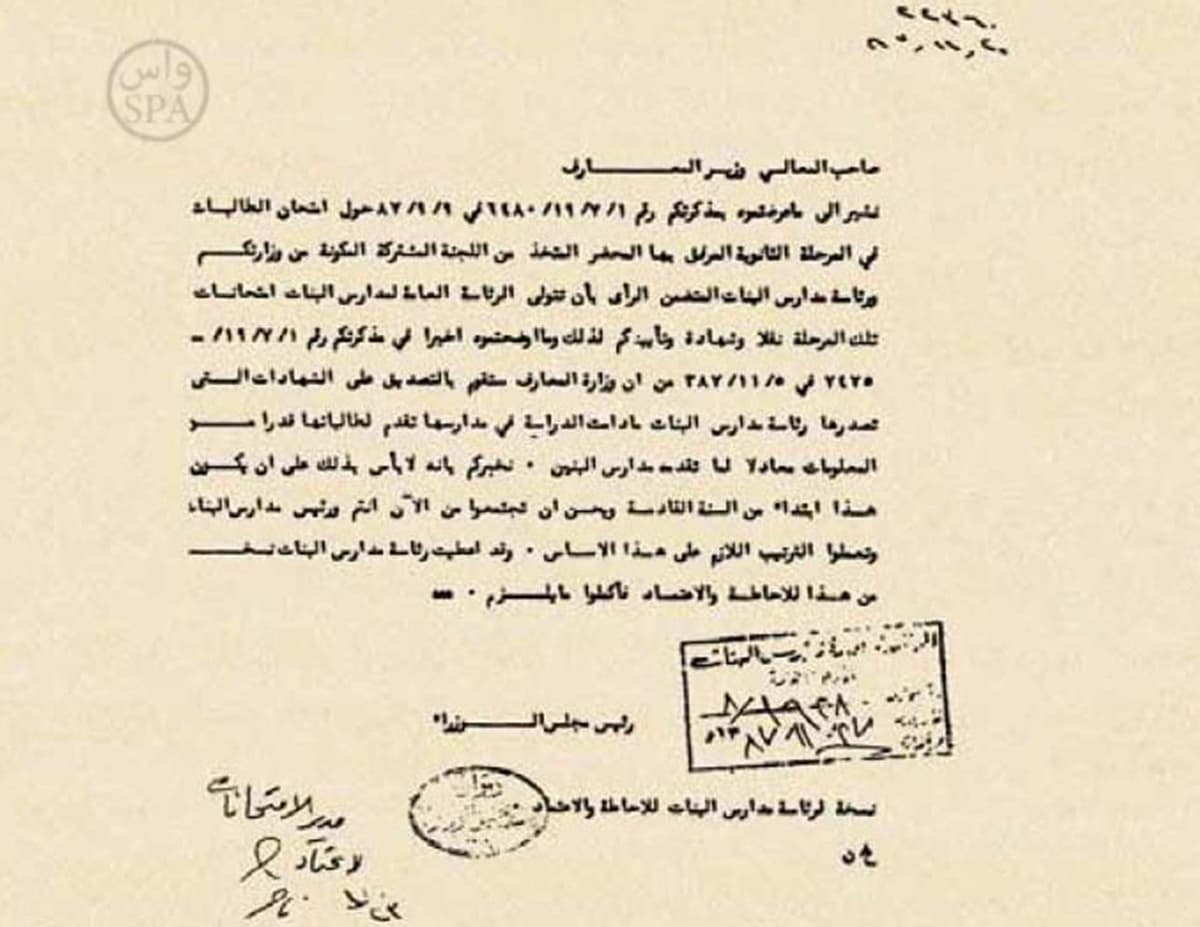 ٢٢٣٦٠
واس
SPA
صاحب المعالي وزير المعـــــارف
نشير الى ماعرضتموه بمذكرتكم رقم ١٩/٧/١/ ٦٤٨٠في ٨٧/٩/٩حول امتحان الطالبات
في المرحلة الثانوية المرفق بها المحضر المتخذ من اللجنة المشتركة المكونة من وزارتكـــم
ورئاسة مدارس البنات المتضمن الرأى بأن تتولى الرئاسة العامة لمدارس البنات امتحانـــات
تلك المرحلة نقلا وشهادة وتأييدكم لذلك وما اوضحتموه اخيرا في مذكرتكم رقم ١٩/٧/١/ ــ
٧٤٢٥ في ٣٨٧/١١/٥ من ان وزارة المعارف ستقوم بالتصديق على الشهادات الـــتى
تصدرها رئاسة مدارس البنات مادامت الدراسة في مدارسها تقدم لطالباتها قدرا مـــن
المعلومات معادلا لما تقدمه مدارس البنين ٠ نخبركم بانه لابأس بذلك على ان يكـــون
هـــذا ابتداء من السنة القادمة ويحسن ان تجتمعوا من الآن انتم ورئيس مدارس البنات
وتعملوا الترتيب اللازم على هـــذا الاساس ٠ وقد اعطيت رئاسة مدارس البنات نسخـــة
من هـــذا للاحاطـة والاعتمـــاد فأكملوا مايلـــزم ٠ ــ
مدارس البنات
رئيس مجلس الـــــوزراء
ديوان
نسخة لرئاسة مدارس البنات للاحاطة والاعتماد
ع ن
مدير الامتحانات
لاعتماد